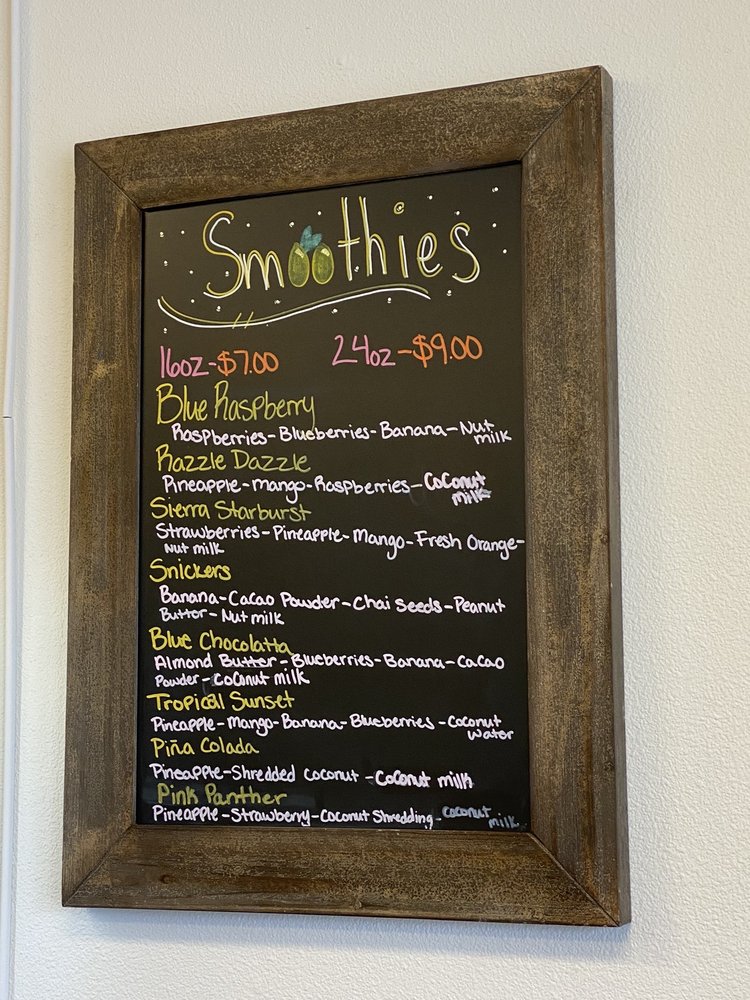 Smoothies
16oz-$7.00 24oz-$9.00
Blue Raspberry
Raspberries-Blueberries-Banana-Nut
milk
Razzle Dazzle
Pineapple-Mango-Raspberries-Coconut
milk
Sierra Starburst
Strawberries-Pineapple-Mango-Fresh Orange-
Nut milk
Snickers
Banana-Cacao Powder-Chai Seeds-Peanut
Butter-Nut milk
Blue Chocolatta
Almond Butter-Blueberries-Banana-Cacao
Powder-Coconut milk
Tropical Sunset
Pineapple-Mango-Banana-Blueberries-Coconut
water
Piña Colada
Pineapple-Shredded coconut-Coconut milk
Pink Panther
Pineapple-Strawberry-Coconut Shredding-coconut
milk